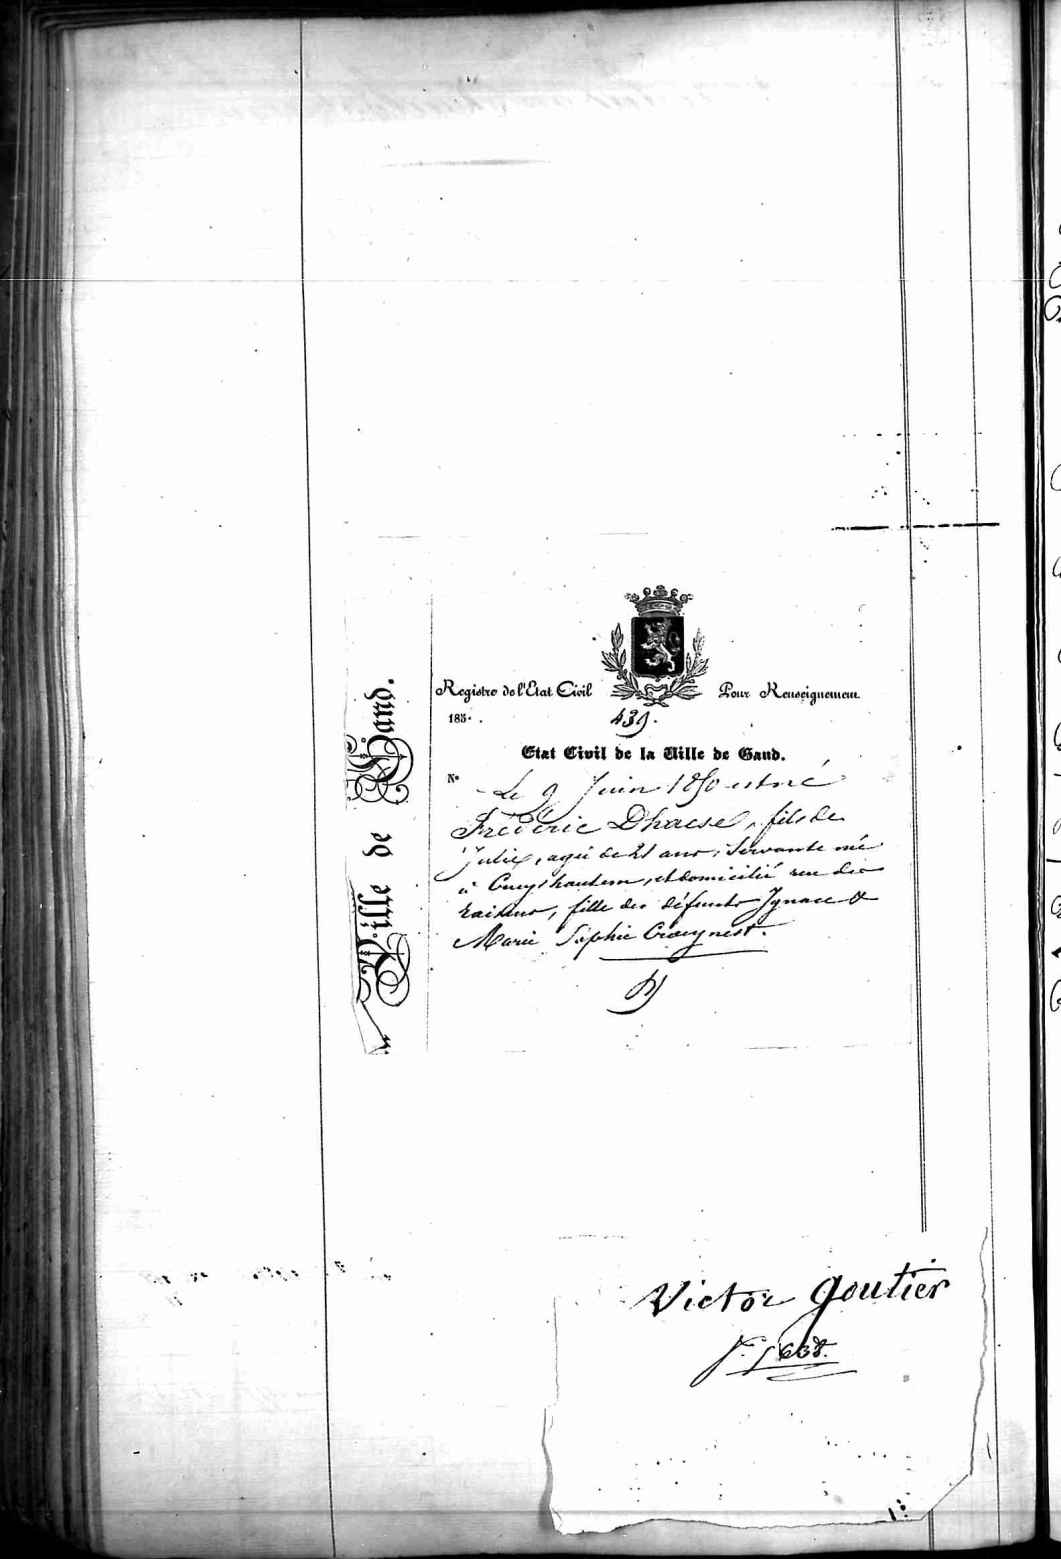 Ville de Gand.
Registre de l'Etat Civil Pour Renseignement
185 . 439.
Etat Civil de la Ville de Gand.
N° Le 9 Juin 1850 est né
Fréderic Dhaese, fils de
Julie, agée de 21 ans, Servante née
à Cruyshautem, et domicilié rue des
, fille des défunts Ignace &
Marie Sophie Craeynest.
Victor Goutier